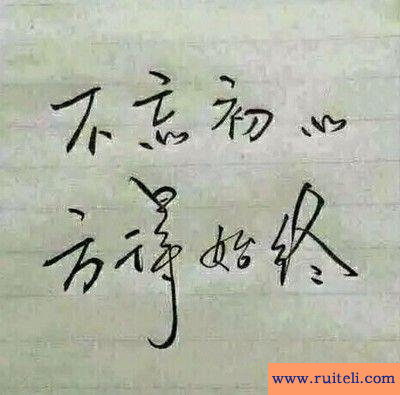 不忘初心
方得始终
www.ruiteli.com